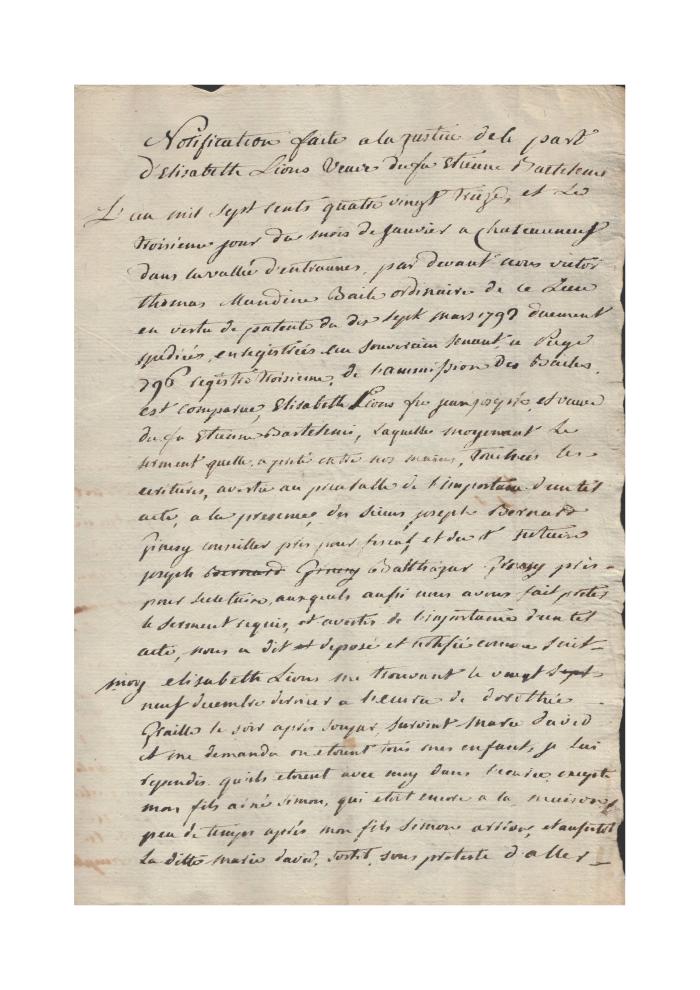 Notification faite a la justice de la part
d'Elisabeth Lions Veuve du fu Etienne Bartelemi
L'an mil sept cents quatre vingt treize, et Le
troisieme jour du mois de Janvier a Chateauneuf
dans la vallée d'entraunes par devant nous victor
thomas Mandine Baile ordinaire de ce Lieu
en vertu de patente du dix sept mars 1792 duement
expediées, enregistrées au Souverain Senat, a Page
796 registre troisieme, de l'ammission des Bailes,
est comparue, Elisabeth Lions fu jean et veuve
du fu Etienne Bartelemi, Laquelle moyenant Le
serment quelle a preté entre nos mains, touchées les
ecritures, avertie au prealable de l'importance d'un tel
acte, a la presence, des sieurs joseph Bernard
Ginesy conseiller pris pour fiscal, et du Sr
joseph Bernard Ginesy Balthazar Ginesy pris-
pour secretaire, auxquels aussi nous avons fait preter
le serment requis, et avertis de l'importance d'un tel
acte, nous a dit et deposé et notifié comme suit-
moy elisabeth Lions me trouvant le vingt sept
neuf decembre dernier a l'ecurie de dorothée
Graille le soir après souper, survint marie david
et me demanda ou etoient tous mes enfant, je lui
repondis quils etoient avec moy dans l'ecurie, excepte
mon fils ainé Simon, qui etoit encore a la maison,
peu de temps après mon fils Simon arriva, et aussitot
La ditte marie david, sortit, sous preteste d'aller-